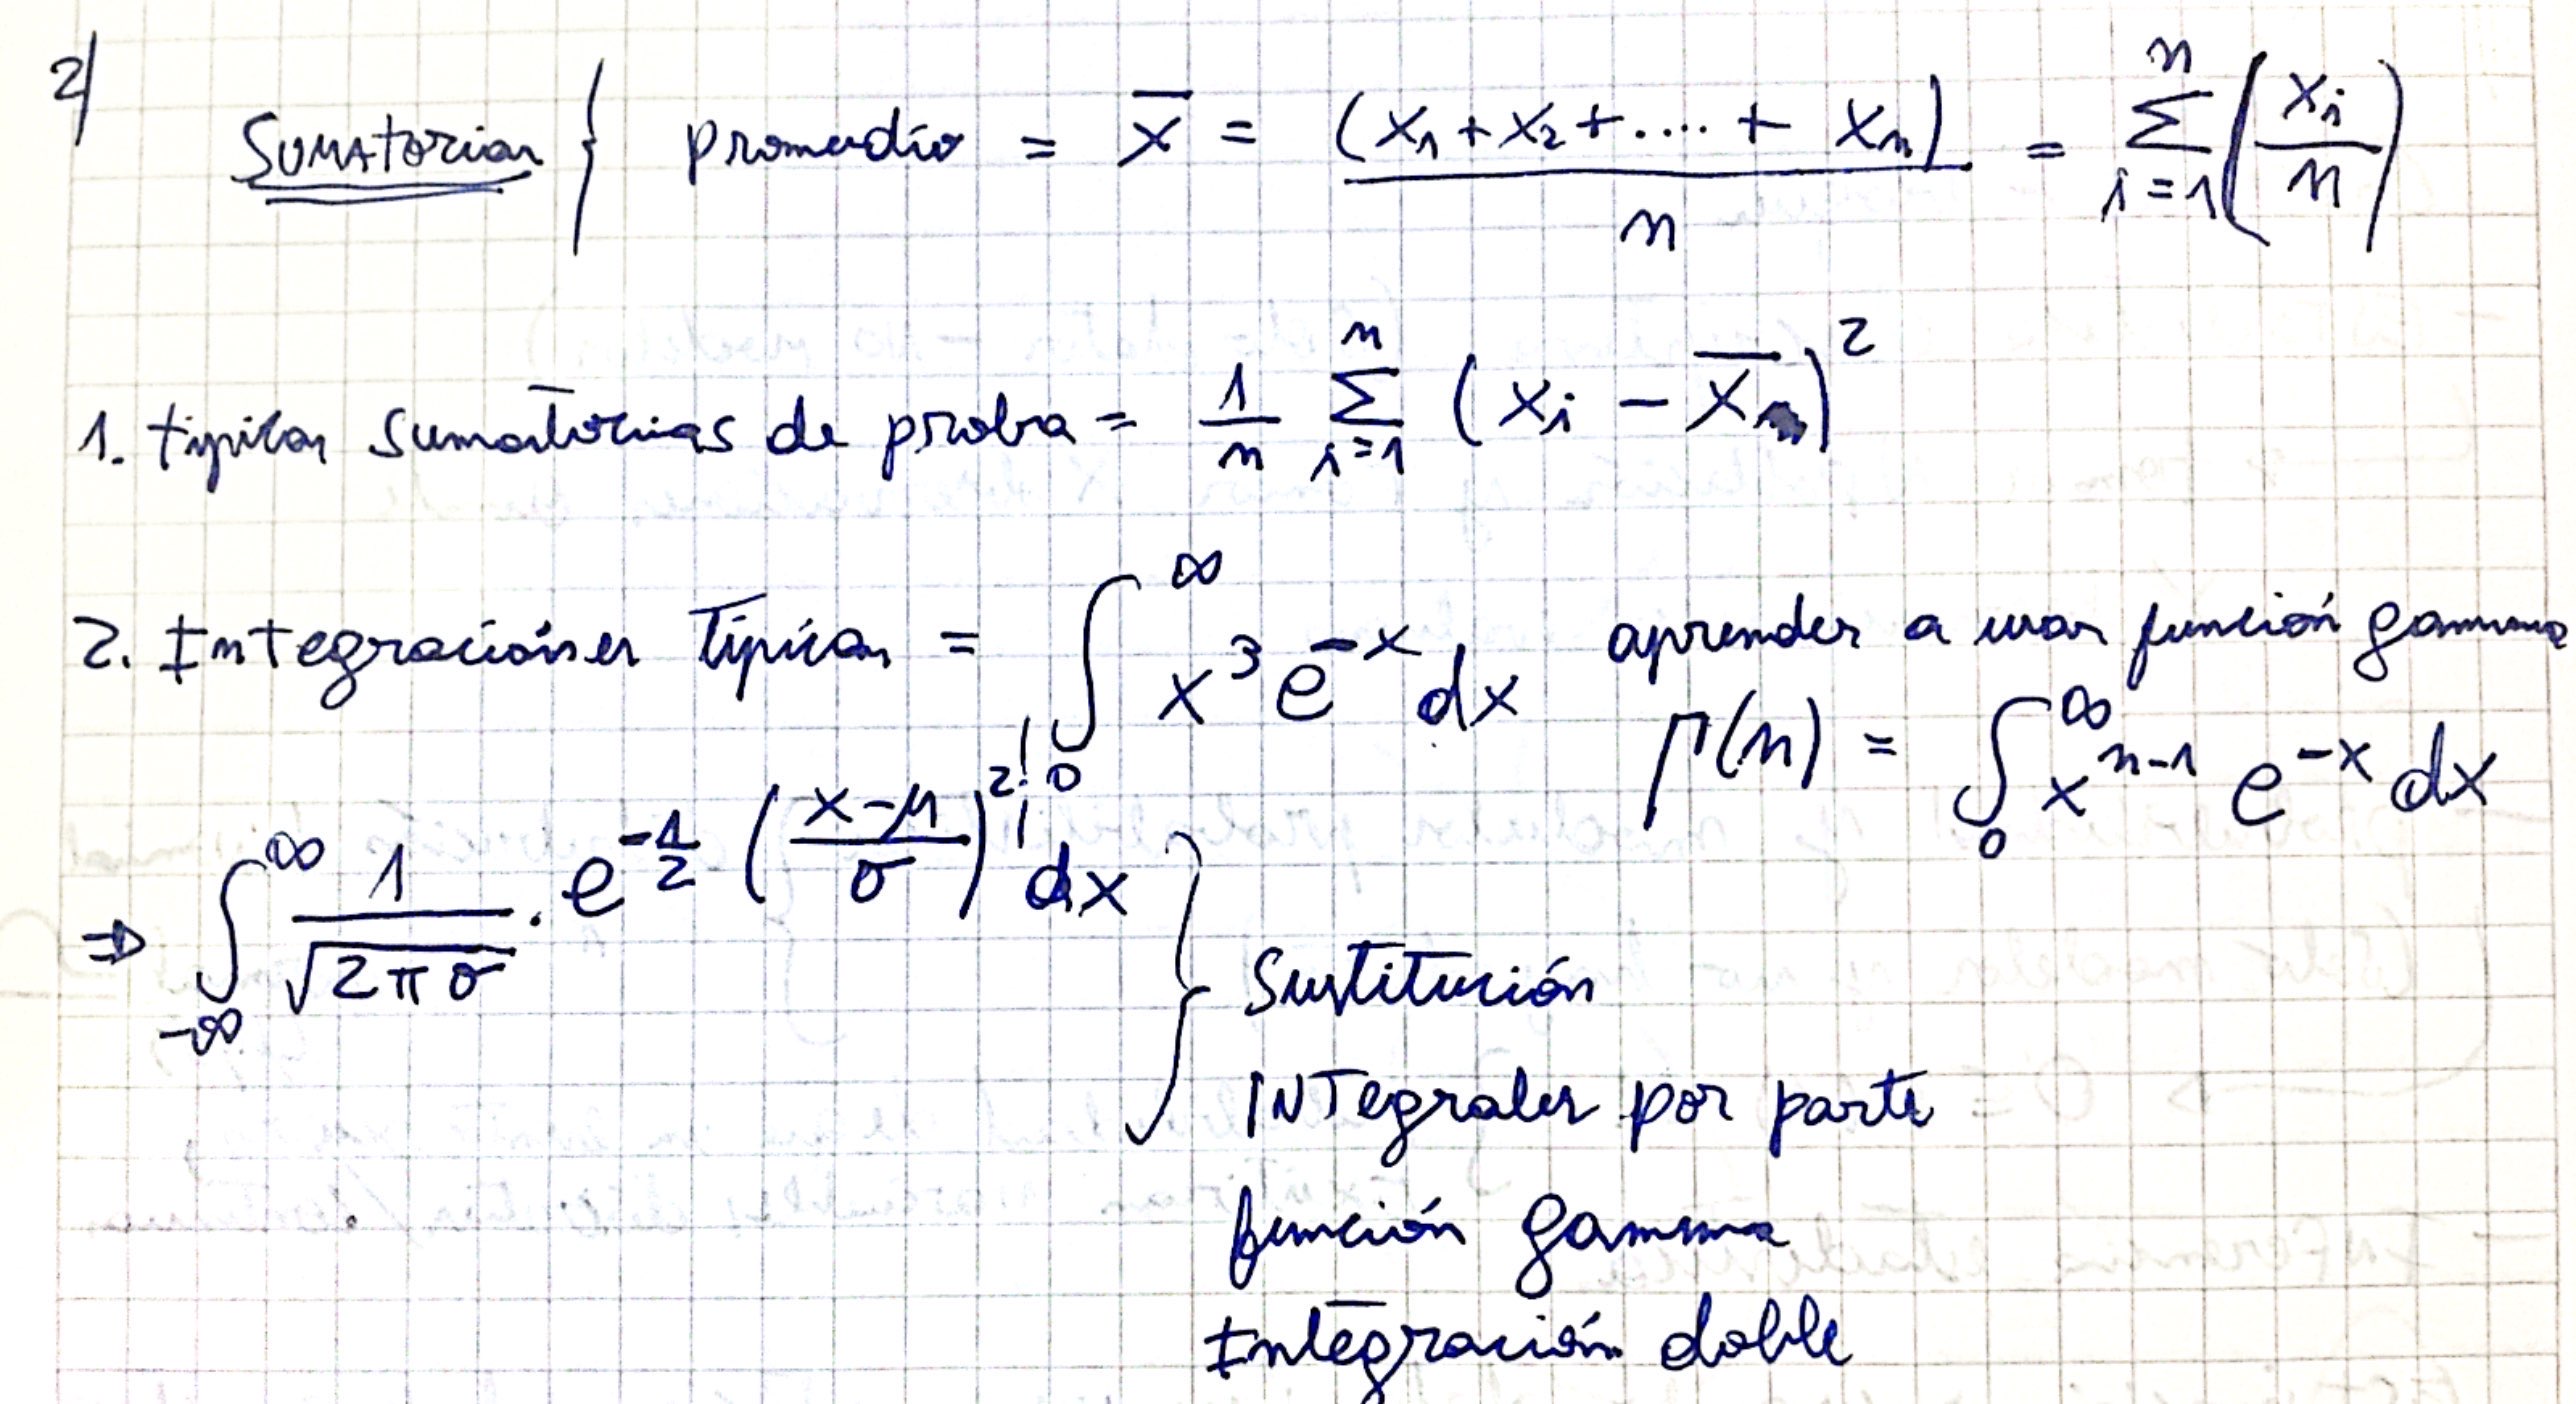 2)
Sumatorias { promedio = x̄ = (x₁ + x₂ + .... + xₙ) / n = Σ_{i=1}^{n} (x_i / n)
1. tipicas sumatorias de proba = 1/n Σ_{i=1}^{n} (x_i - x̄ₙ)²
2. Integraciónes Típicas = ∫_0^∞ x³ e^{-x} dx aprender a usar función gamma
Γ(n) = ∫_0^∞ x^{n-1} e^{-x} dx
⇒ ∫_{-∞}^{∞} 1/√(2πσ) · e^{-1/2 ((x-μ)/σ)²} dx }
Sustitución
INTegrales por parte
función gamma
Integración doble